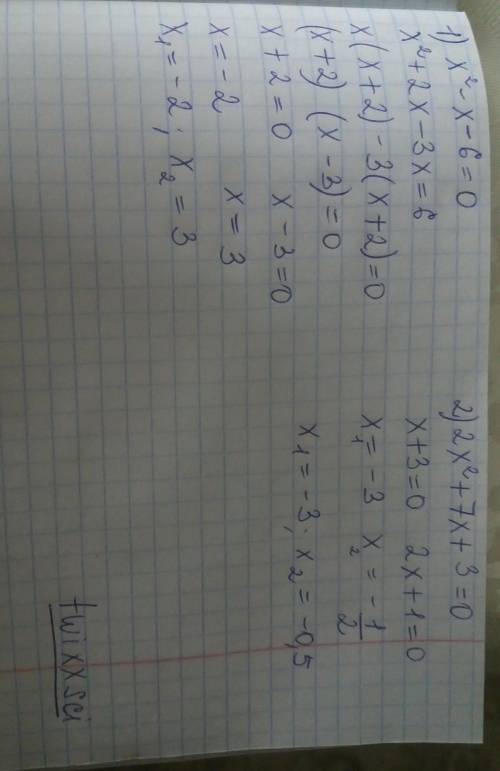 1) x² - x - 6 = 0
x² + 2x - 3x = 6
x(x+2) - 3(x+2) = 0
(x+2) (x-3) = 0
x + 2 = 0 x - 3 = 0
x = -2 x = 3
x₁ = -2; x₂ = 3
2) 2x² + 7x + 3 = 0
x+3 = 0 2x+1 = 0
x₁ = -3 x₂ = -1/2
x₁ = -3; x₂ = -0,5
twixxsci